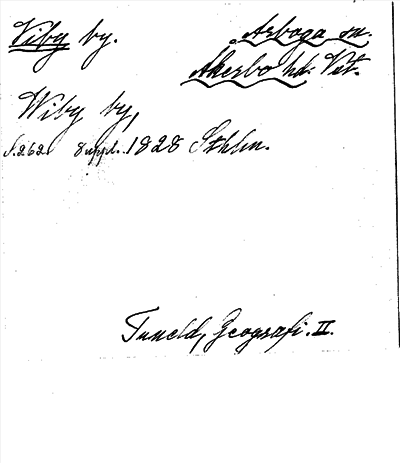 Viby by. Arboga sn.
Åkerbo hd. Vstm.
Wiby by,
S.262. 8 uppl. 1828 Sthlm.
Tuneld, Geografi. II.